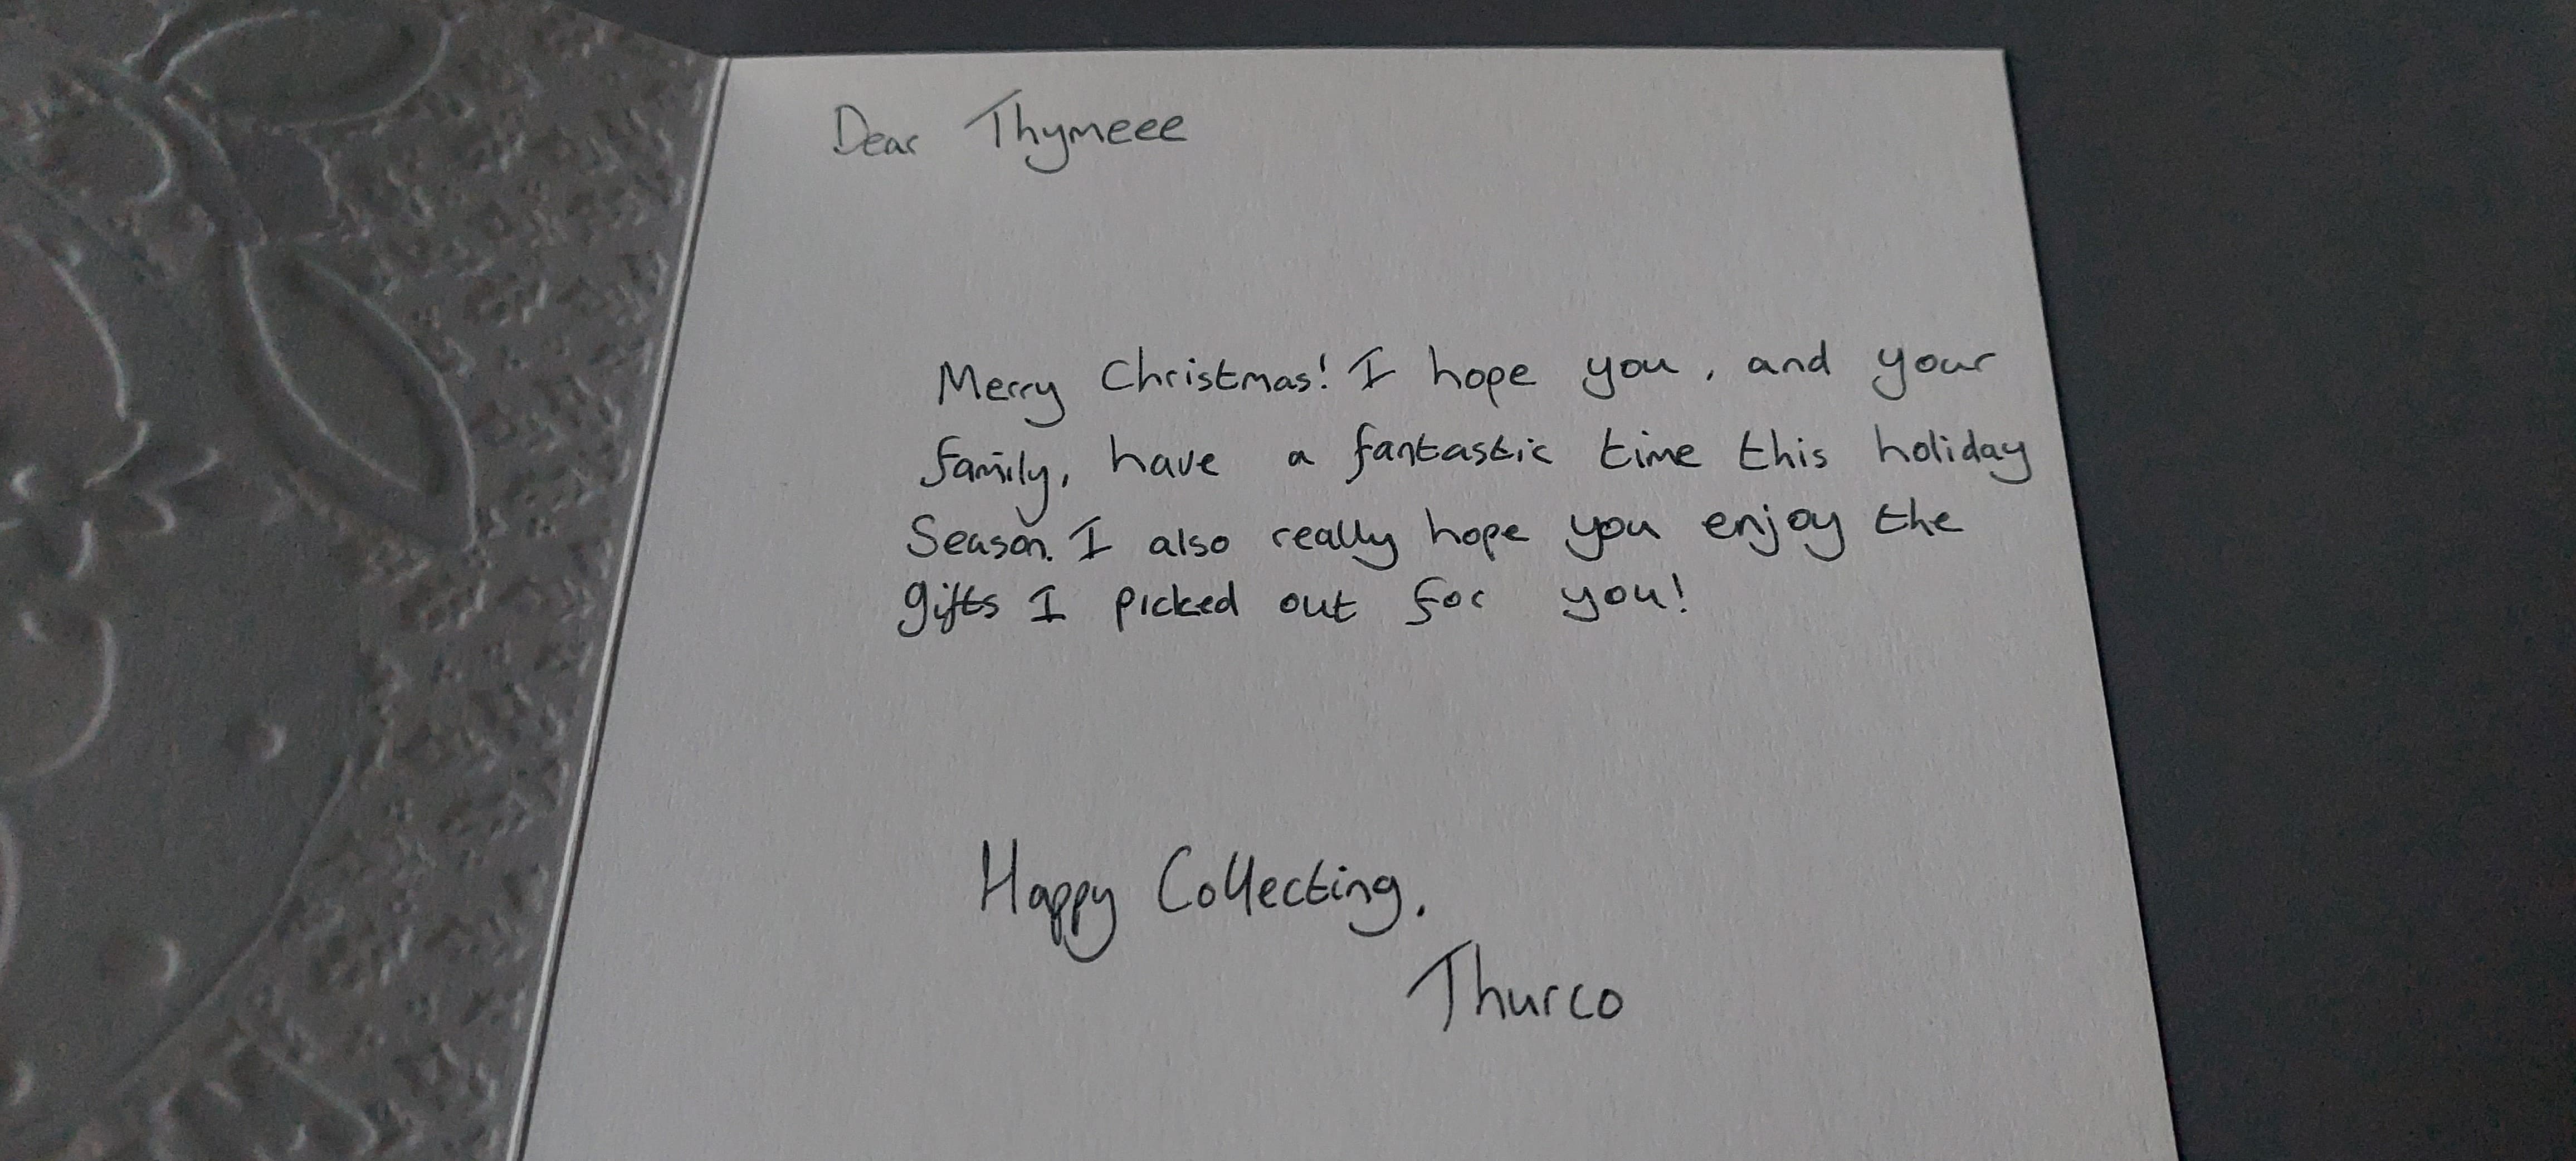 Dear Thymeee
Merry Christmas! I hope you, and your
family, have a fantastic time this holiday
Season. I also really hope you enjoy the
gifts I picked out for you!
Happy Collecting.
Thurco